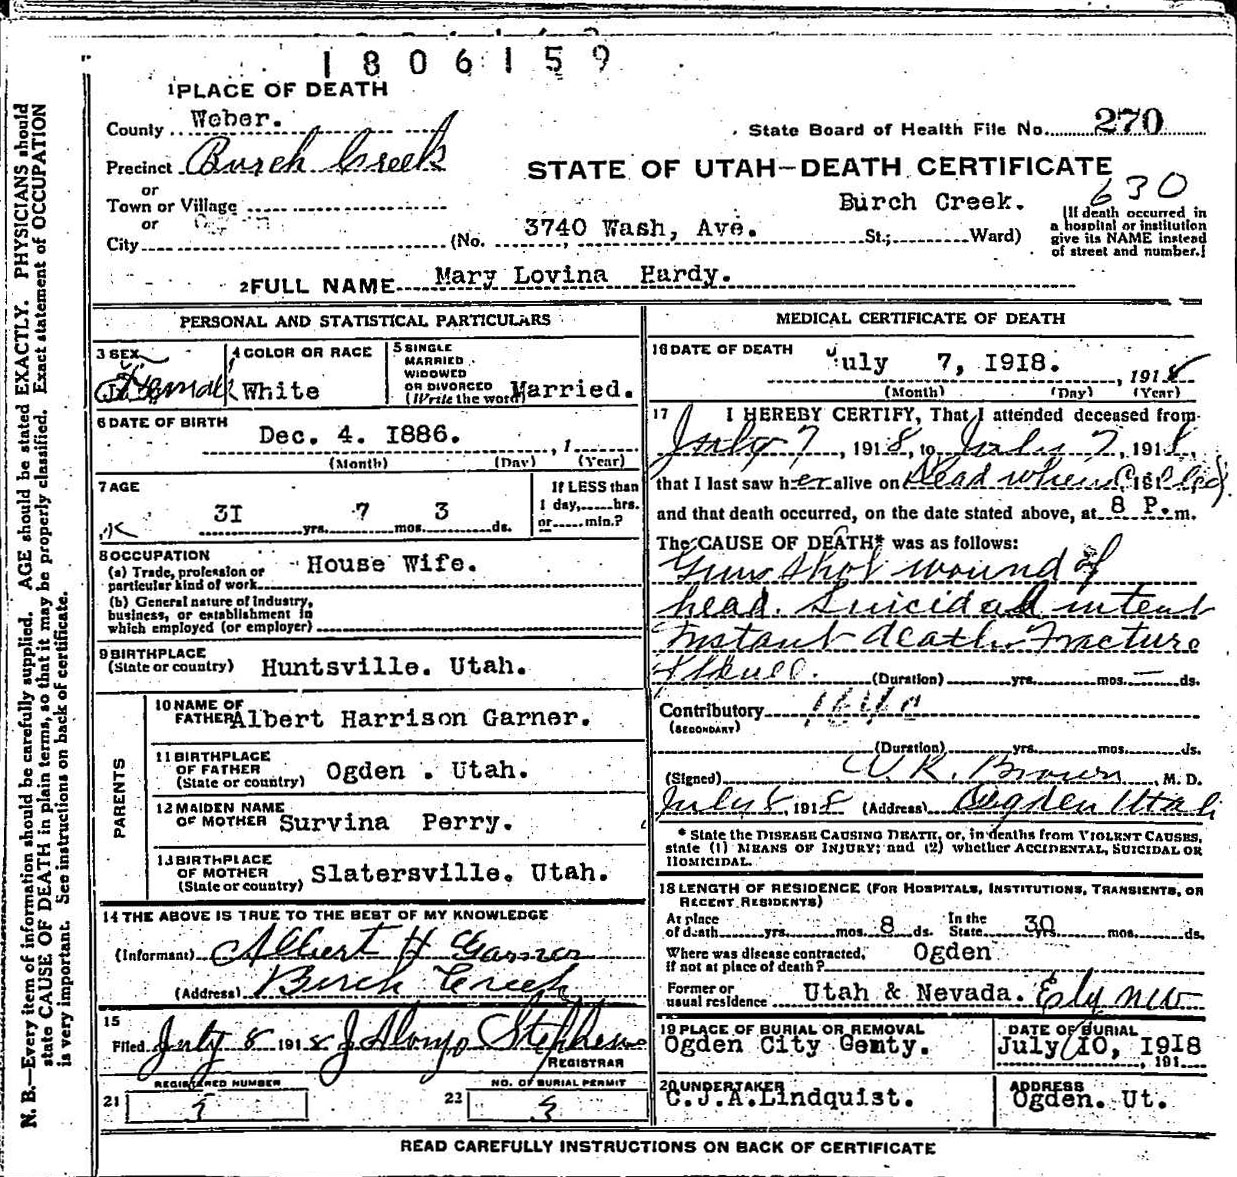 1806159
1 PLACE OF DEATH
County Weber.
State Board of Health File No. 270
Precinct Burch Creek
STATE OF UTAH—DEATH CERTIFICATE
or
Town or Village
Burch Creek.
630
or
City (No. 3740 Wash, Ave. St.; Ward)
[If death occurred in
a hospital or institution
give its NAME instead
of street and number.]
2 FULL NAME Mary Lovina Hardy.
PERSONAL AND STATISTICAL PARTICULARS
3 SEX
Female
4 COLOR OR RACE
White
5 SINGLE
MARRIED
WIDOWED
OR DIVORCED
(Write the word) Married.
6 DATE OF BIRTH
Dec. 4. I886. , 1
(Month) (Day) (Year)
7 AGE
3I yrs. 7 mos. 3 ds.
If LESS than
1 day, hrs.
or min.?
8 OCCUPATION
(a) Trade, profession or
particular kind of work House Wife.
(b) General nature of industry,
business, or establishment in
which employed (or employer)
9 BIRTHPLACE
(State or country) Huntsville. Utah.
PARENTS
10 NAME OF
FATHER Albert Harrison Garner.
11 BIRTHPLACE
OF FATHER
(State or country) Ogden . Utah.
12 MAIDEN NAME
OF MOTHER Survina Perry.
13 BIRTHPLACE
OF MOTHER
(State or country) Slatersville. Utah.
14 THE ABOVE IS TRUE TO THE BEST OF MY KNOWLEDGE
(Informant) Albert H Garner
(Address) Burch Creek
15
Filed July 8 1918 J Alonzo Stephens
REGISTRAR
REGISTERED NUMBER
21
NO. OF BURIAL PERMIT
22
MEDICAL CERTIFICATE OF DEATH
16 DATE OF DEATH July 7, I9I8. , 1918
(Month) (Day) (Year)
17 I HEREBY CERTIFY, That I attended deceased from
July 7, 1918, to July 7, 1918,
that I last saw her alive on Dead when Called, 191
and that death occurred, on the date stated above, at 8 P. m.
The CAUSE OF DEATH* was as follows:
Gun shot wound of
head. Suicidal intent
Instant death. Fracture
Skull. (Duration) yrs. mos. ds.
Contributory
(SECONDARY)
(Duration) yrs. mos. ds.
(Signed) W R. Brown, M. D.
July 8, 1918 (Address) Ogden Utah
* State the DISEASE CAUSING DEATH, or, in deaths from VIOLENT CAUSES,
state (1) MEANS OF INJURY; and (2) whether ACCIDENTAL, SUICIDAL OR
HOMICIDAL.
18 LENGTH OF RESIDENCE (FOR HOSPITALS, INSTITUTIONS, TRANSIENTS, OR
RECENT RESIDENTS)
At place
of death yrs. mos. 8 ds. In the
State 30 yrs. mos. ds.
Where was disease contracted,
if not at place of death? Ogden
Former or
usual residence Utah & Nevada. Ely Nev
19 PLACE OF BURIAL OR REMOVAL
Ogden City Cemty.
DATE OF BURIAL
July 10, I9I8 , 191
20 UNDERTAKER
C.J.A.Lindquist.
ADDRESS
Ogden. Ut.
READ CAREFULLY INSTRUCTIONS ON BACK OF CERTIFICATE
N. B.—Every item of information should be carefully supplied. AGE should be stated EXACTLY. PHYSICIANS should
state CAUSE OF DEATH in plain terms, so that it may be properly classified. Exact statement of OCCUPATION
is very important. See instructions on back of certificate.